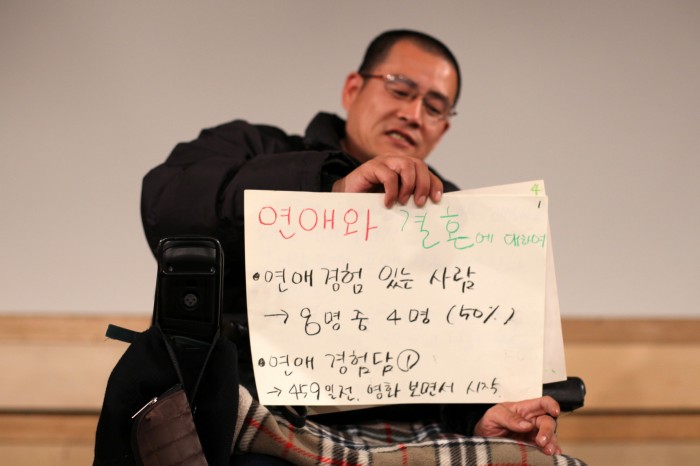 4
1
연애와 결혼에 대하여
• 연애경험 있는 사람
→ 8명 중 4명 (50%)
• 연애 경험담 ①
→ 459일전. 영화 보면서 시작.